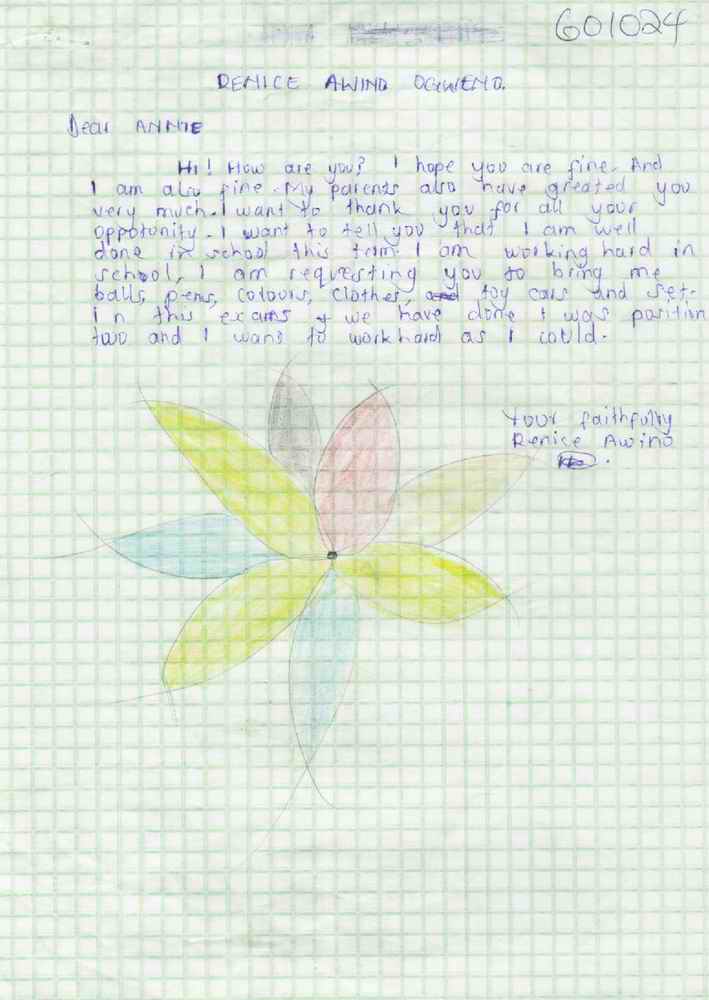 601024
RENICE AWINO OGWENO.
Dear ANNIE
Hi! How are you? I hope you are fine. And
I am also fine. My parents also have greated you
very much. I want to thank you for all your
opportunity. I want to tell you that I am well
done in school this team. I am working hard in
school, I am requesting you to bring me
balls, pens, colours, clothes, toy cars and set.
in this exams we have done I was position
two and I want to work hard as I could.
Your faithfully
Renice Awino